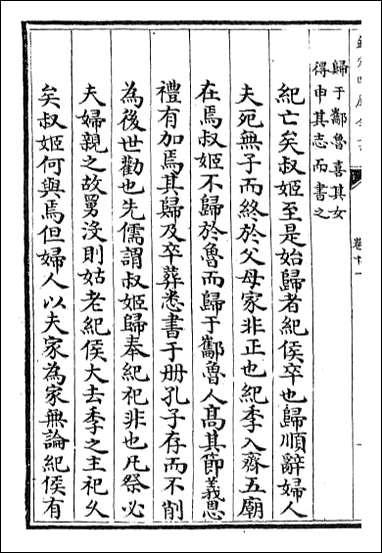 歸于酅魯喜其女
得申其志而書之
紀亡矣叔姬至是始歸者紀侯卒也歸順辭婦人
夫死無子而終於父母家非正也紀季入齊五廟
在焉叔姬不歸於魯而歸于酅魯人高其節義恩
禮有加焉其歸及卒葬悉書于册孔子存而不削
為後世勸也先儒謂叔姬歸奉紀祀非也凡祭必
夫婦親之故舅沒則姑老紀侯大去季之主祀久
矣叔姬何與焉但婦人以夫家為家無論紀侯有